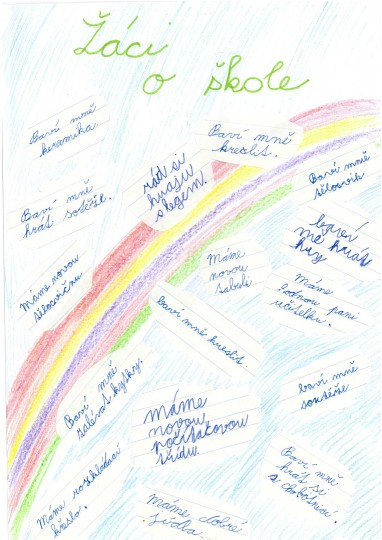 Žáci
o škole
Baví mně
keramika.
Baví mně
kreslit.
rád si
hraju
s legem.
Baví mně
tělocvik
Baví mně
hrát soutěže.
baví
mě hrát
hry
Máme novou
tělocvičnu
Máme
novou
Máme
hodnou paní
učitelku.
baví mně kreslit.
Baví mně
zalévat kytky.
baví mně
soutěže
Máme
novou
počítačovou
třídu.
Baví mě
hrát si
s
Máme rozkládací
křeslo.
Máme dobré
jídla.